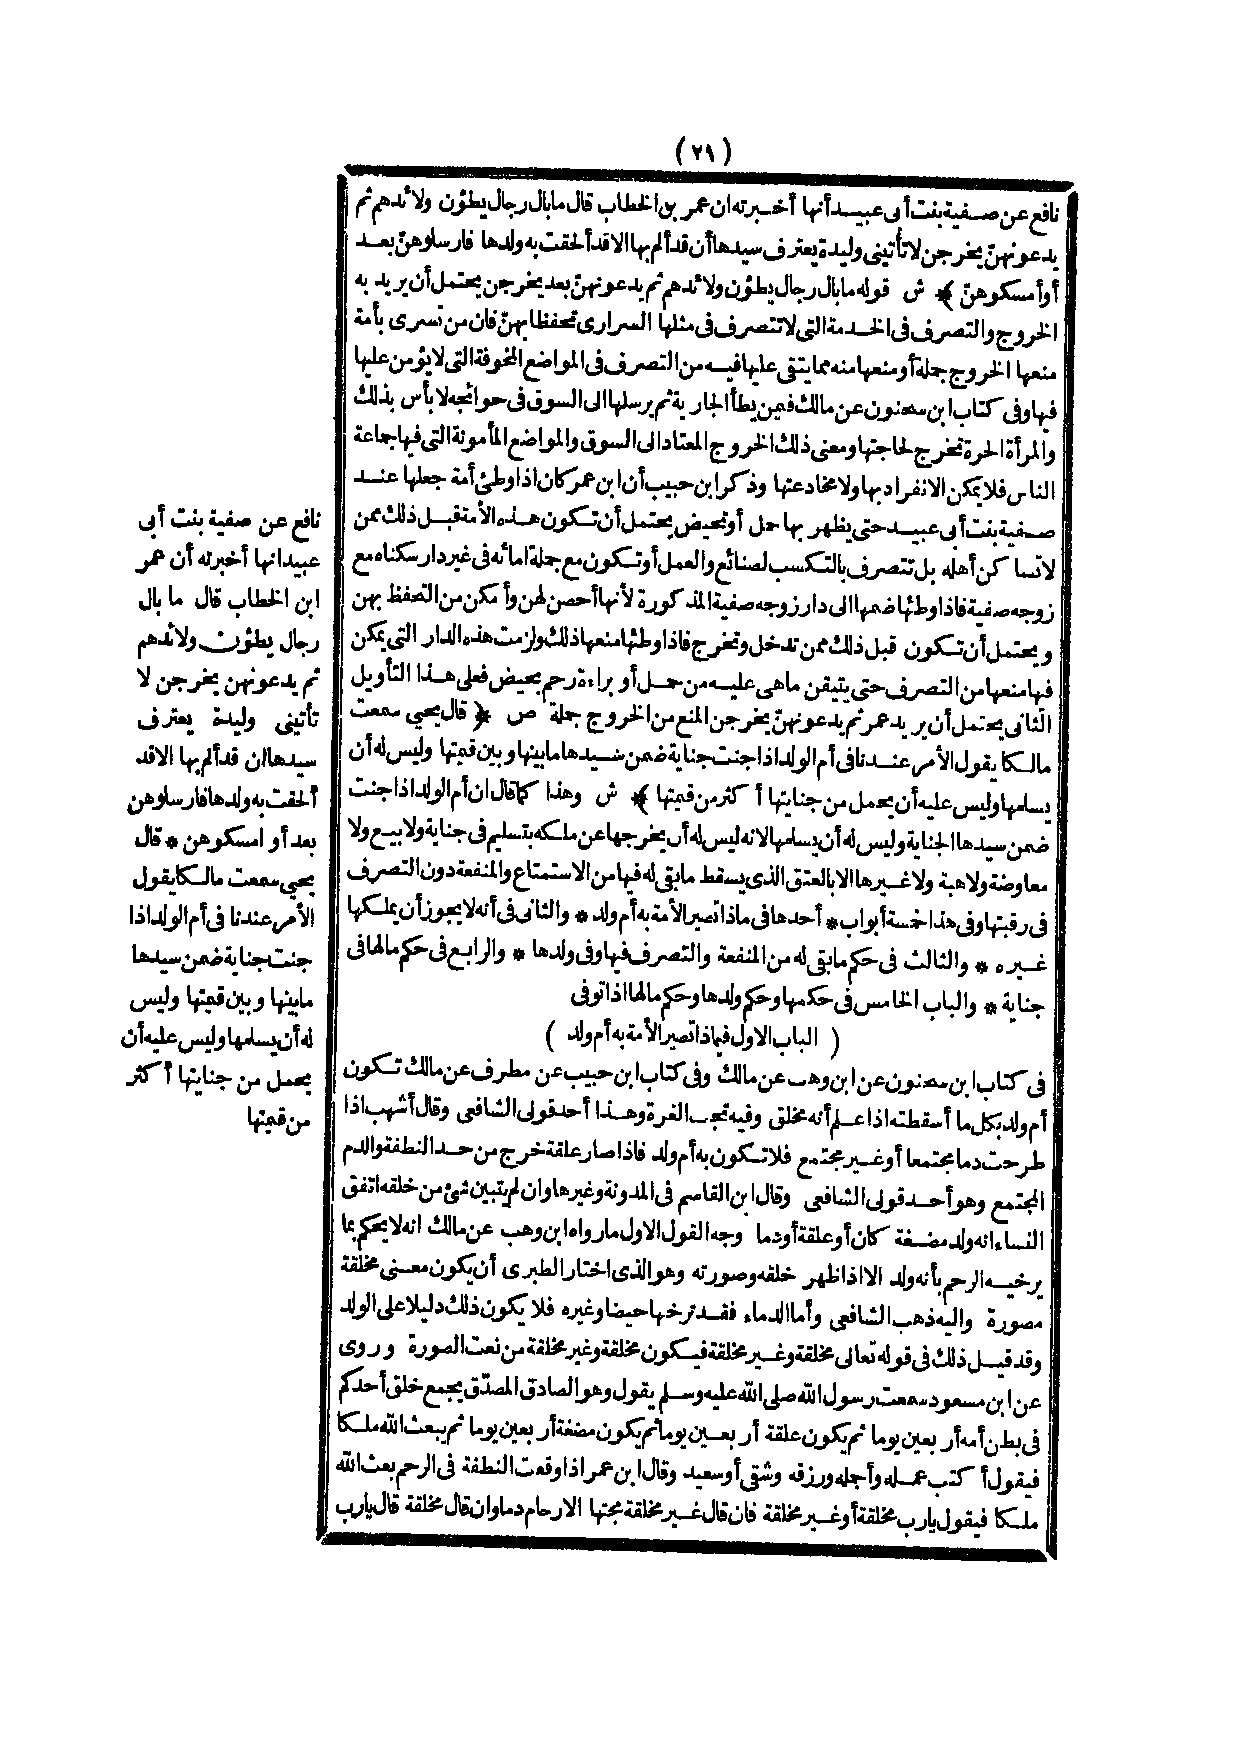 (٢٩)
نافع عن صفية بنت أبى عبيد أنها أخبرته ان عمر بن الخطاب قال ما بال رجال يطؤن ولائدهم ثم
يدعونهنّ يخرجن لا تأتينى وليدة يعترف سيدها أن قد ألم بها الا قد ألحقت به ولدها فارسلوهنّ بعد
أو أمسكوهنّ ﴾ ش قوله ما بال رجال يطؤن ولائدهم ثم يدعونهنّ بعد يخرجن يحتمل أن يريد به
الخروج والتصرف فى الخدمة التى لا تتصرف فى مثلها السرارى تحفظا بهنّ فان من تسرى بأمة
منعها الخروج جملة أو منعها منه مما يتقى عليها فيه من التصرف فى المواضع المخوفة التى لا يؤمن عليها
فيها وفى كتاب ابن سحنون عن مالك فيمن يطأ الجارية ثم يرسلها الى السوق فى حوائجه لا بأس بذلك
والمرأة الحرة تخرج لحاجتها ومعنى ذلك الخروج المعتاد الى السوق والمواضع المأمونة التى فيها جماعة
الناس فلا يمكن الانفراد بها ولا مخادعتها وذكر ابن حبيب أن ابن عمر كان اذا وطئ أمة جعلها عند
صفية بنت أبى عبيد حتى يظهر بها حمل أو تحيض يحتمل أن تكون هذه الأمة قبل ذلك ممن
لا تساكن أهله بل تتصرف بالتكسب لصنائع والعمل أو تكون مع جملة امائه فى غير دار سكناه مع
زوجه صفية فاذا وطئها ضمها الى دار زوجه صفية المذكورة لأنها أحصن لهن وأمكن من التحفظ بهن
ويحتمل أن تكون قبل ذلك ممن تدخل وتخرج فاذا وطئها منعها ذلك ولزمت هذه الدار التى يمكن
فيها منعها من التصرف حتى يتيقن ما هى عليه من حمل أو براءة رحم بحيض فعلى هذا التأويل
الثانى يحتمل أن يريد عمر ثم يدعونهنّ يخرجن المنع من الخروج جملة ص ﴿ قال يحيى سمعت
مالكا يقول الأمر عندنا فى أم الولد اذا جنت جناية ضمن سيدها ما بينها وبين قيمتها وليس له أن
يسلمها وليس عليه أن يحمل من جنايتها أكثر من قيمتها ﴾ ش وهذا كما قال ان أم الولد اذا جنت
ضمن سيدها الجناية وليس له أن يسلمها لانه ليس له أن يخرجها عن ملكه بتسليم فى جناية ولا بيع ولا
معاوضة ولا هبة ولا غيرها الا بالعتق الذى يسقط ما بقى له فيها من الاستمتاع والمنفعة دون التصرف
فى رقبتها وفى هذا خمسة أبواب * أحدها فى ماذا تصير الأمة به أم ولد * والثانى فى أنه لا يجوز أن يملكها
غيره * والثالث فى حكم ما بقى له من المنفعة والتصرف فيها وفى ولدها * والرابع فى حكم مالها فى
جناية * والباب الخامس فى حكمها وحكم ولدها وحكم مالها اذا توفى
( الباب الاول فيماذا تصير الأمة به أم ولد )
فى كتاب ابن سحنون عن ابن وهب عن مالك وفى كتاب ابن حبيب عن مطرف عن مالك تكون
أم ولد بكل ما أسقطته اذا علم أنه مخلق وفيه تجب الغرة وهذا أحد قولى الشافعى وقال أشهب اذا
طرحت دما مجتمعا أو غير مجتمع فلا تكون به أم ولد فاذا صار علقة خرج من حد النطفة والدم
المجتمع وهو أحد قولى الشافعى وقال ابن القاسم فى المدونة وغيرها وان لم يتبين شئ من خلقه اتفق
النساء انه ولد مضغة كان أو علقة أو دما وجه القول الاول ما رواه ابن وهب عن مالك انه لا يحكم بما
يرخيه الرحم بأنه ولد الا اذا ظهر خلقه وصورته وهو الذى اختار الطبرى أن يكون معنى مخلقة
مصورة واليه ذهب الشافعى وأما الدماء فقد ترخها حيضا وغيره فلا يكون ذلك دليلا على الولد
وقد قيل ذلك فى قوله تعالى مخلقة وغير مخلقة فيكون مخلقة وغير مخلقة من نعت الصورة وروى
عن ابن مسعود سمعت رسول الله صلى الله عليه وسلم يقول وهو الصادق المصدّق يجمع خلق أحدكم
فى بطن أمه أربعين يوما ثم يكون علقة أربعين يوما ثم يكون مضغة أربعين يوما ثم يبعث الله ملكا
فيقول أكتب عمله وأجله ورزقه وشقى أو سعيد وقال ابن عمر اذا وقعت النطفة فى الرحم بعث الله
ملكا فيقول يارب مخلقة أو غير مخلقة فان قال غير مخلقة مجتها الارحام دما وان قال مخلقة قال يارب
نافع عن صفية بنت أبى
عبيد انها أخبرته أن عمر
ابن الخطاب قال ما بال
رجال يطؤن ولائدهم
ثم يدعونهن يخرجن لا
تأتينى وليدة يعترف
سيدها ان قد ألم بها الا قد
ألحقت به ولدها فارسلوهن
بعد أو امسكوهن * قال
يحيى سمعت مالكا يقول
الأمر عندنا فى أم الولد اذا
جنت جناية ضمن سيدها
ما بينها وبين قيمتها وليس
له أن يسلمها وليس عليه أن
يحمل من جنايتها أكثر
من قيمتها